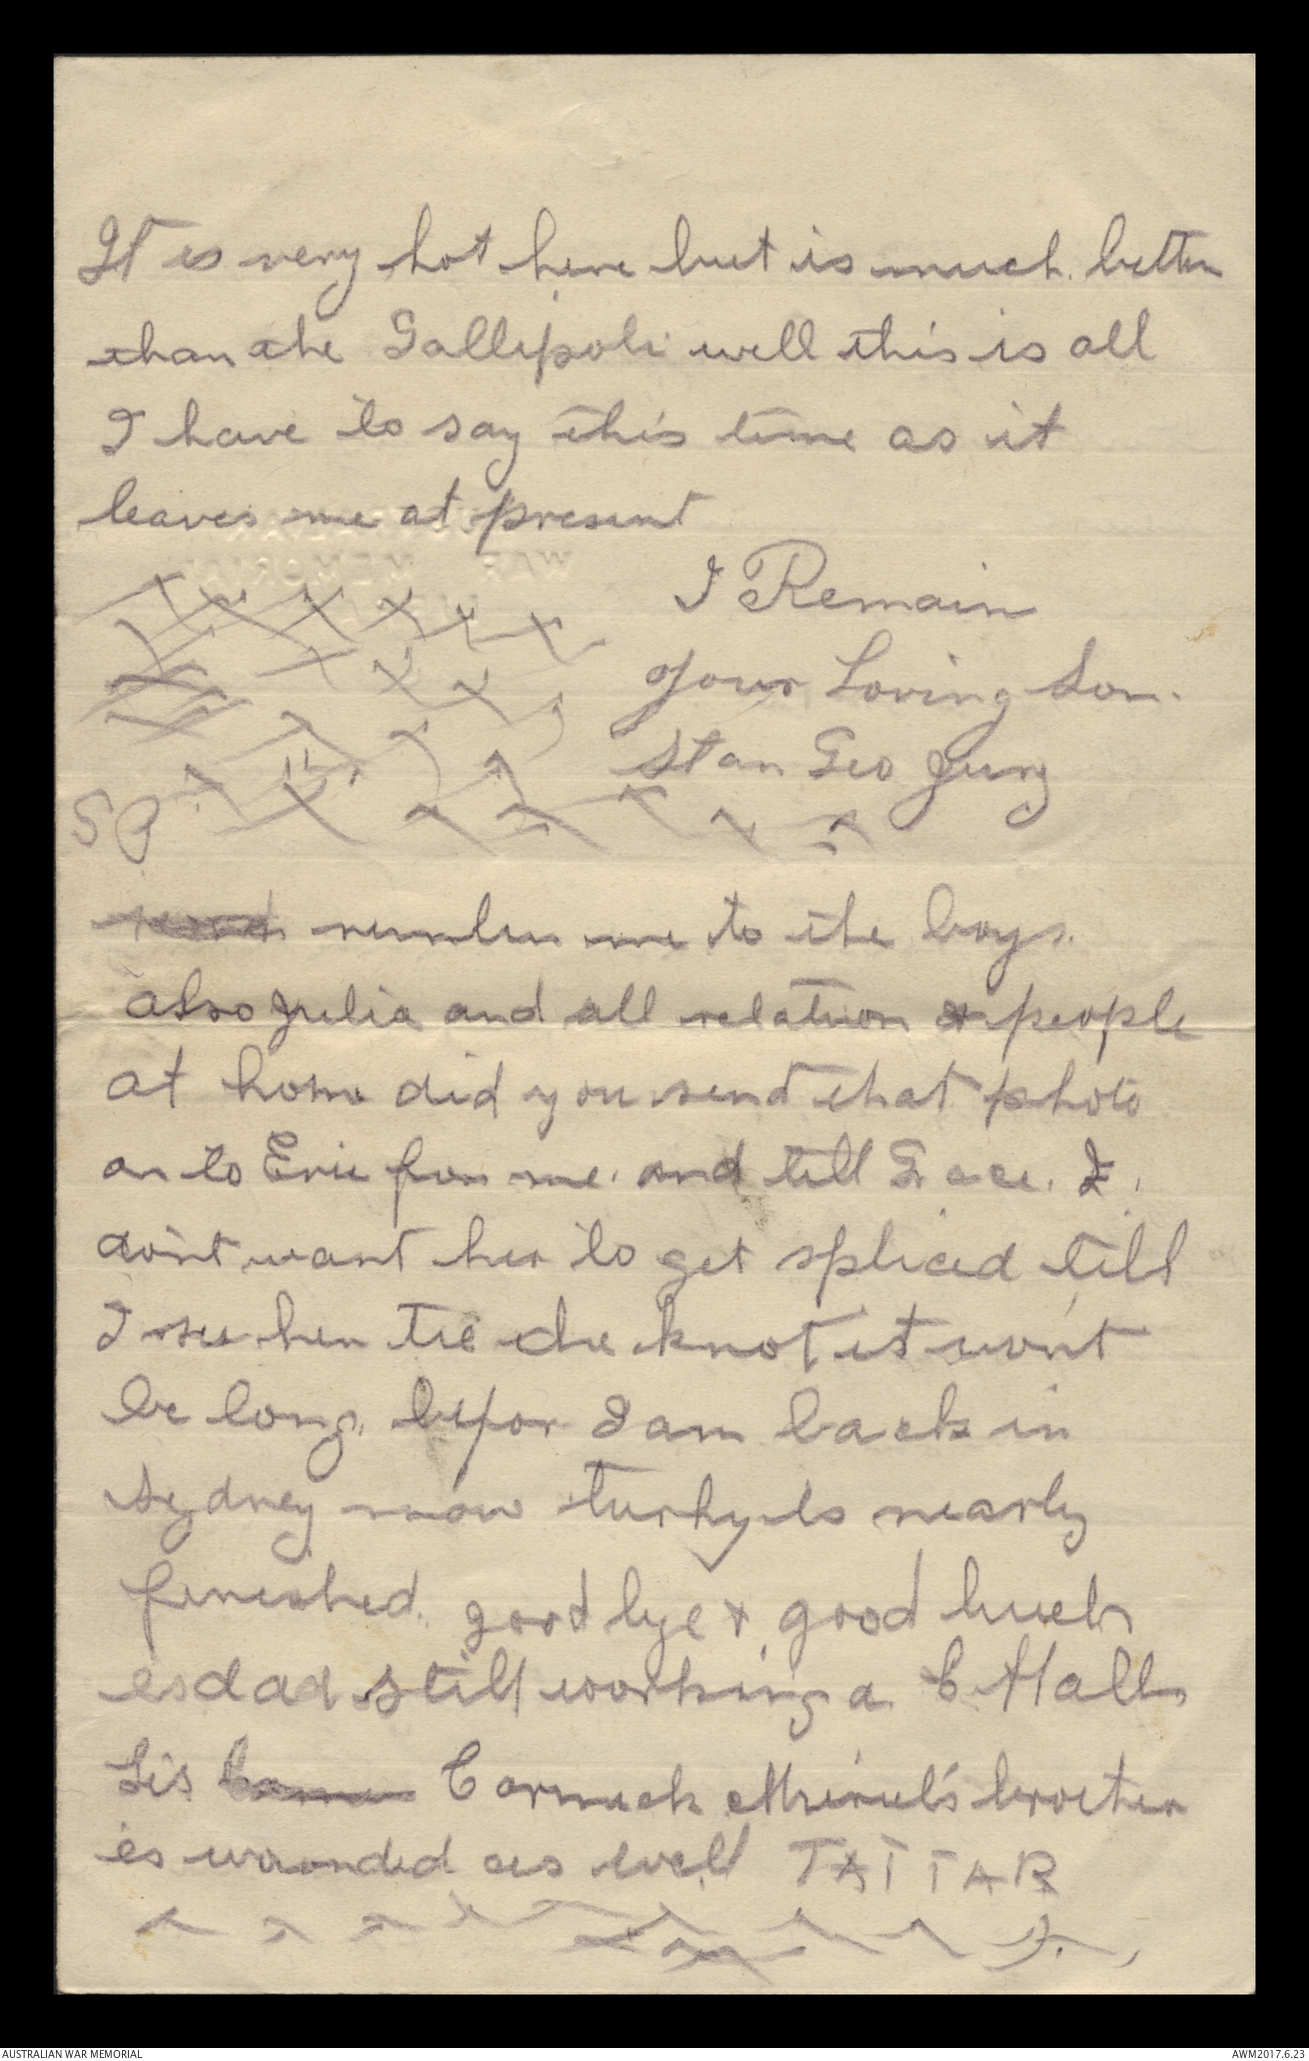 It is very hot here but is much better
than the Gallipoli well this is all
I have to say this time as it
leaves me at present
I Remain
your Loving Son.
Stan Geo Jung
SP
remember me to the boys.
also Julia and all relation & people
at home did you send that photo
on to Eric for me. and tell Grace. I
dont want her to get spliced till
I see her tie the knot it wont
be long. befor I am back in
Sydney now turky is nearly
finished. good bye & good luck
is dad still working a C Hall
Lis Cormack Muriel's brother
is wounded as well TATTAR
AUSTRALIAN WAR MEMORIAL
AWM2017.6.23